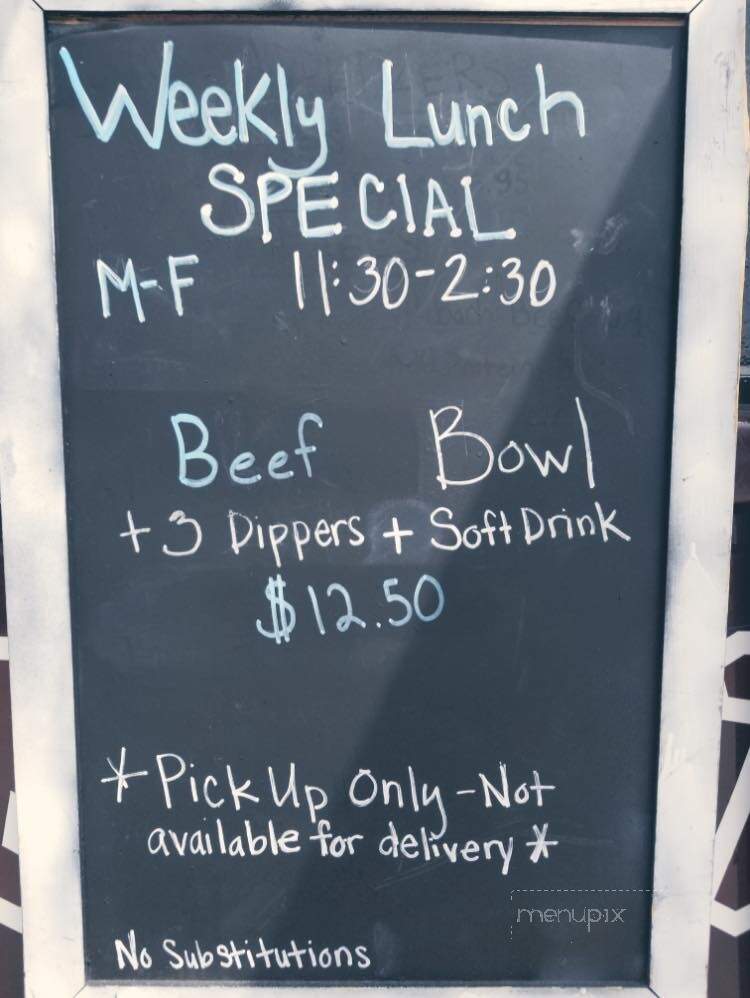 Weekly Lunch
SPECIAL
M-F 11:30-2:30
Beef Bowl
+3 Dippers + Soft Drink
$12.50
*Pick Up Only-Not
available for delivery*
menupix
No Substitutions